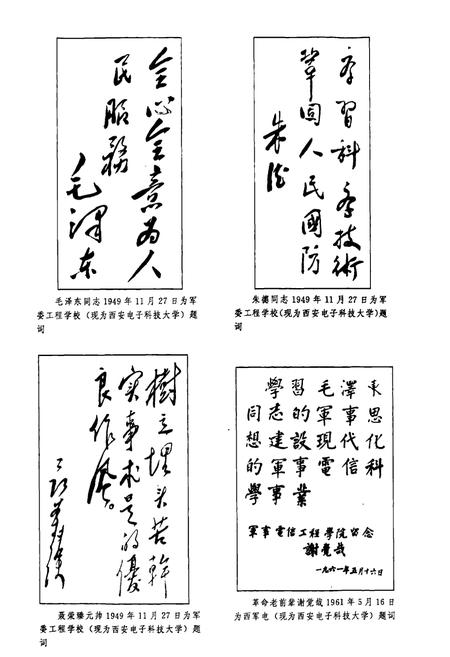 全心全意为人
民服務
毛澤东
毛泽东同志 1949 年 11 月 27 日为军
委工程学校（现为西安电子科技大学）题
词
学習科学技術
鞏固人民國防
朱德
朱德同志 1949 年 11 月 27 日为军
委工程学校(现为西安电子科技大学)题
词
樹立埋头苦幹
实事求是的優
良作風。
聂荣臻
聂荣臻元帅 1949 年 11 月 27 日为军
委工程学校（现为西安电子科技大学）题
词
學習毛澤东
同志的軍事思
想建設現代化
的軍事電信科
學事業
軍事電信工程學院留念
謝覺哉
一九六一年五月十六日
革命老前辈谢觉哉 1961 年 5 月 16 日
为西军电（现为西安电子科技大学）题词